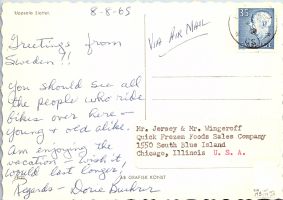 8-8-65
VIA AIR MAIL
35
Greetings from
Sweden!!
You should see all
the people who ride
bikes over here —
young & old alike.
Am enjoying the
vacation — wish it
would last longer,
Regards — Dorie
Mr. Jersey & Mr. Wingeroff
Quick Frozen Foods Sales Company
1550 South Blue Island
Chicago, Illinois U. S. A.
GRAFISK KONST